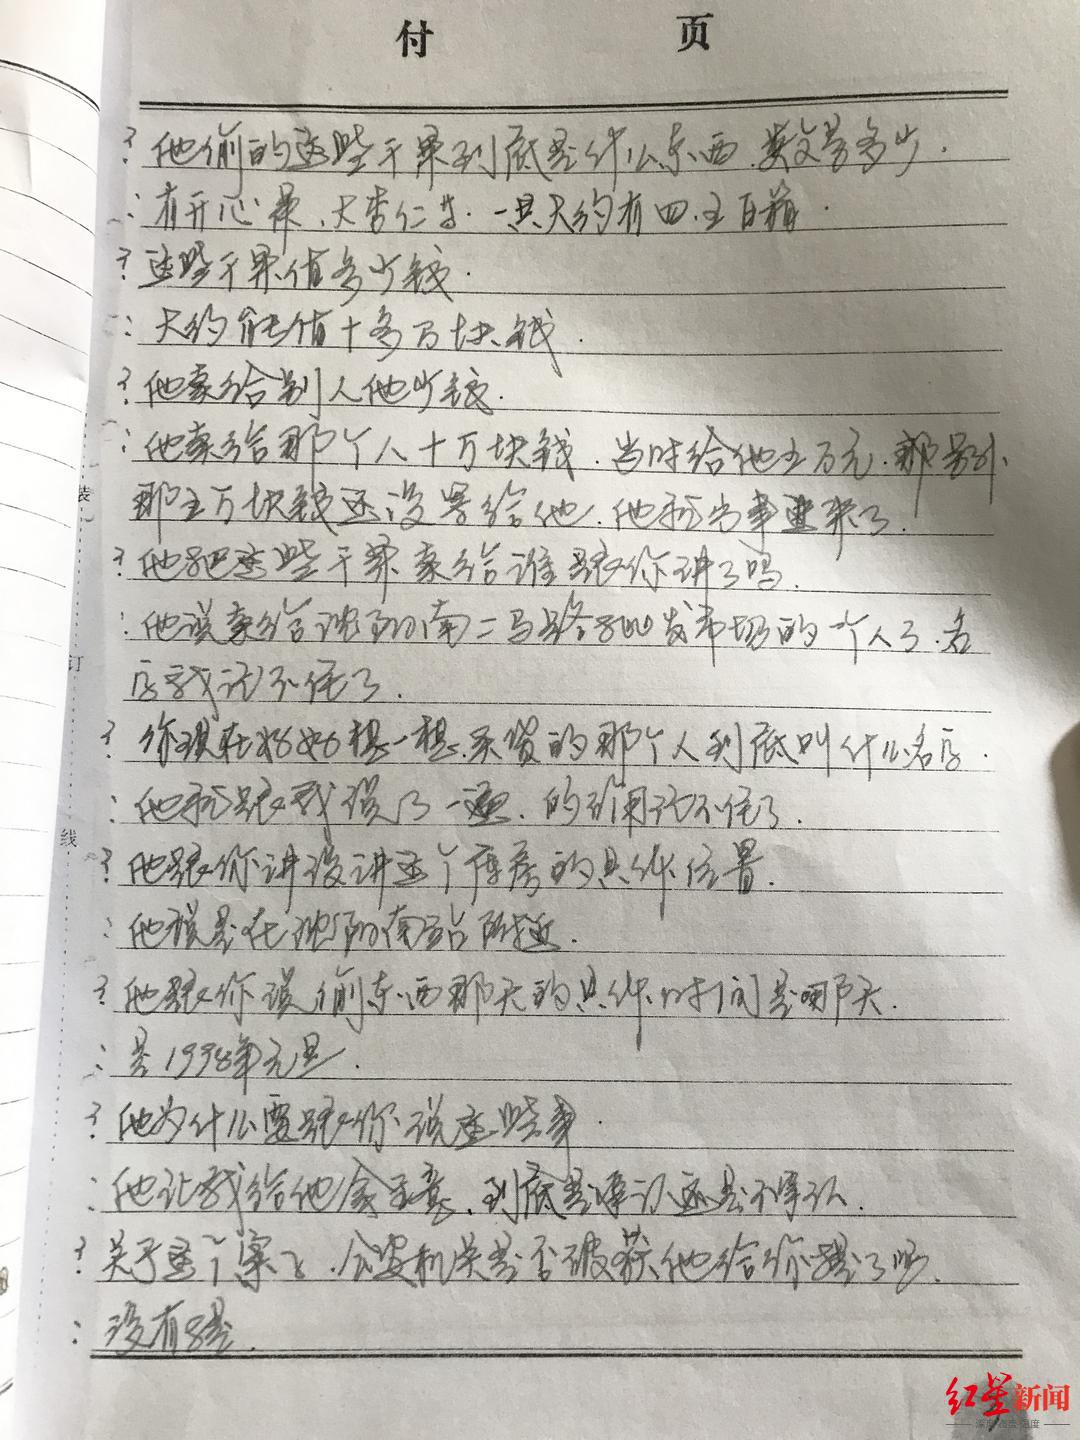 付 页
? 他偷的这些干果到底是什么东西,数量多少.
: 有开心果、大杏仁等.一共大约有四、五百箱.
? 这些干果值多少钱.
: 大约能值十多万块钱.
? 他卖给别人他少钱.
: 他卖给那个人十万块钱.当时给他五万元.那另外
那五万块钱还没等给他.他就出事进来了.
? 他把这些干果卖给谁跟你讲了吗.
: 他说卖给沈阳南二马路批发市场的一个人了.名
字我记不住了.
? 你现在好好想一想.买货的那个人到底叫什么名字.
: 他就跟我说了一遍.的确记不住了.
? 他跟你讲没讲这个库房的具体位置.
: 他说是在沈阳南站附近.
? 他跟你说偷东西那天的具体时间是哪天.
: 是1998年元旦.
? 他为什么要跟你说这些事.
: 他让我给他拿主意.到底是承认还是不承认.
? 关于这个案子.公安机关是否破获他给你提了吗.
: 没有提.
装
订
线
红星新闻
深度 态度 温度